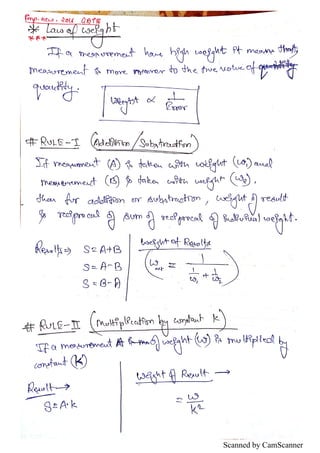 Imp. 2016 GATE
* Law of Weight
***
If a measurement have high weight it means that
measurement is more nearer to the true value of
quantity.
Weight ∝ 1/Error
# RULE-I (Addition / Substraction)
If measurement (A) is taken with weight (ω₁) and
measurement (B) is taken with weight (ω₂).
then for addition or substraction, weight of result
is reciprocal of sum of reciprocal of individual weight.
Results ⇒ S = A+B
S = A-B
S = B-A
weight of Results
(ω = 1 / (1/ω₁ + 1/ω₂))
# RULE-II (Multiplication by constant k)
If a measurement A of weight (ω) is multiplied by
constant (K)
Result →
S = A·k
weight of Result →
= ω/K²
Scanned by CamScanner